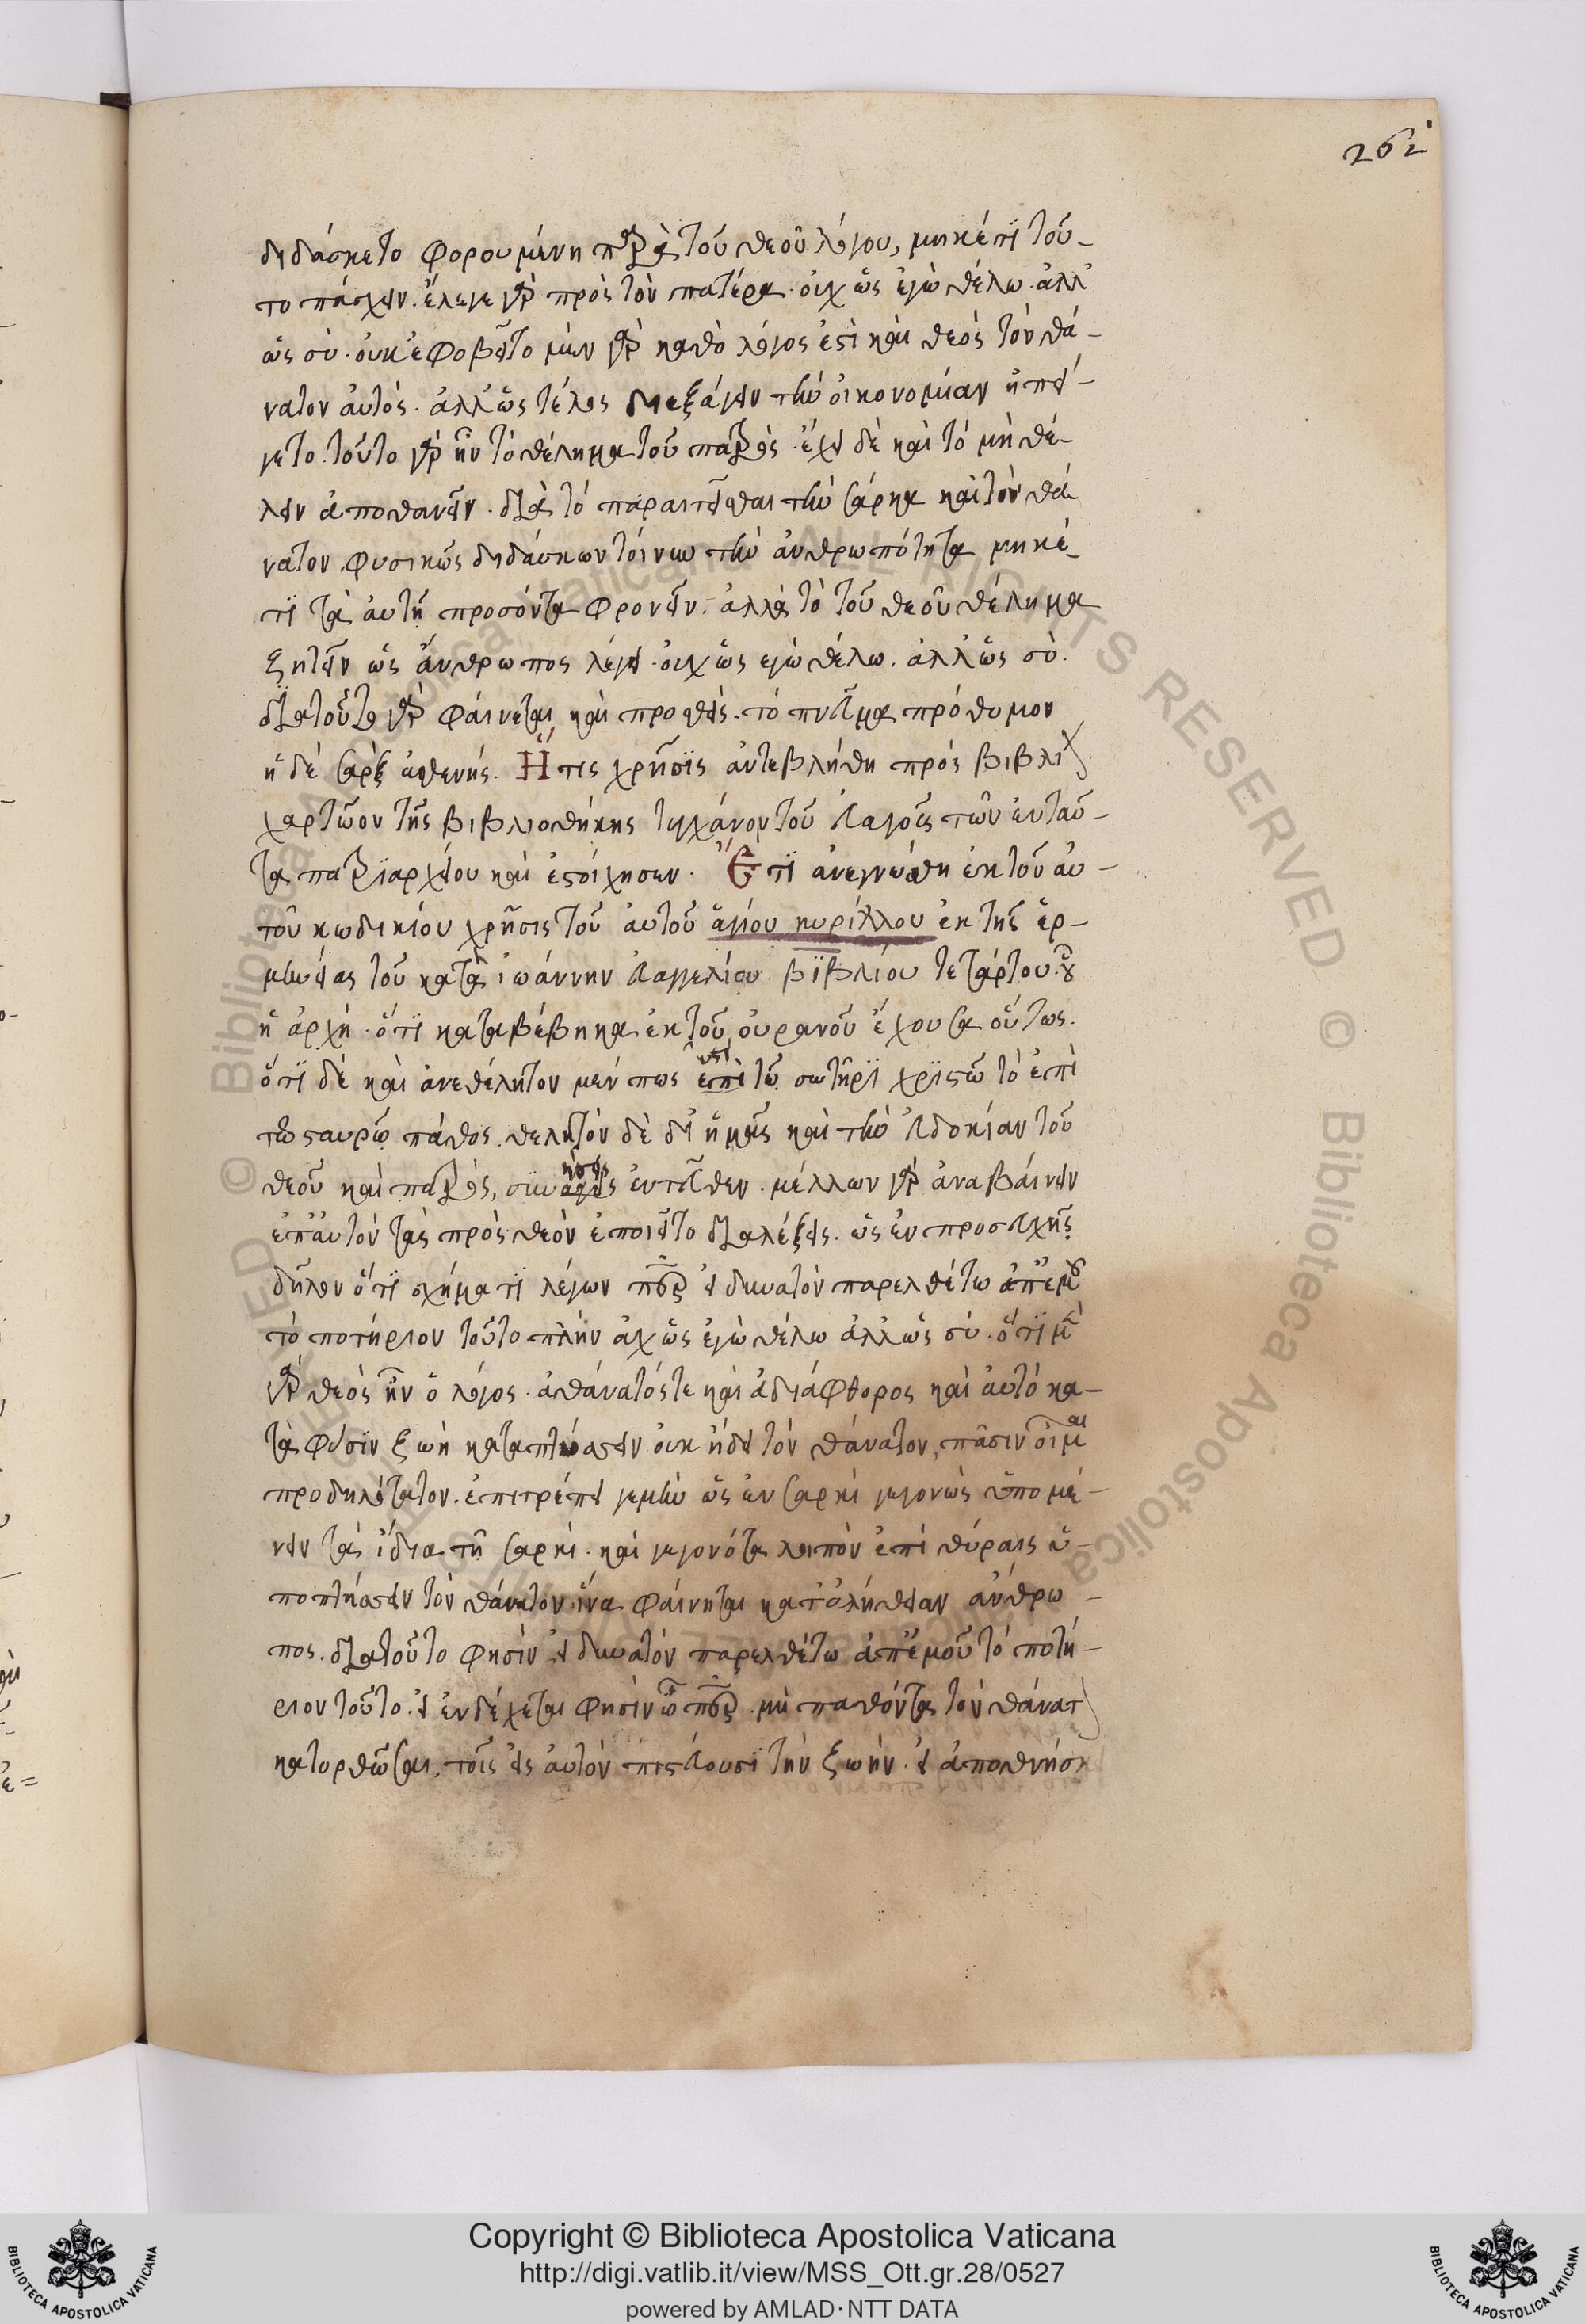 262
διδάσκετο φορουμένη παρὰ τοῦ θεοῦ λόγου, μηκέτι τοῦ-
το πάσχειν. ἔλεγε γὰρ πρὸς τὸν πατέρα. οὐχ ὡς ἐγὼ θέλω. ἀλλ'
ὡς σύ. οὐκ ἐφοβεῖτο μὲν γὰρ καθὸ λόγος ἐστὶ καὶ θεὸς τὸν θά-
νατον αὐτός. ἀλλ' ὡς τέλος διεξάγειν τὴν οἰκονομίαν ἠπεί-
γετο. τοῦτο γὰρ ἦν τὸ θέλημα τοῦ πατρός. ἔχει δὲ καὶ τὸ μὴ θέ-
λειν ἀποθανεῖν. διὰ τὸ παραιτεῖσθαι τὴν σάρκα καὶ τὸν θά
νατον φυσικῶς διδάσκων τοίνυν τὴν ἀνθρωπότητα μηκέ-
τι τὰ αὐτῆ προσόντα φρονεῖν. ἀλλὰ τὸ τοῦ θεοῦ θέλημα
ζητεῖν ὡς ἄνθρωπος λέγει. οὐχ ὡς εγὼ θέλω. ἀλλ' ὡς σύ.
διατοῦτο γὰρ φαίνεται καὶ προσθείς. τὸ πνεῦμα πρόθυμον
ἡ δὲ σὰρξ ἀσθενής. Ἥ τις χρῆσις ἀντεβλήθη πρὸς βιβλί
χαρτῶον τῆς βιβλιοθήκης τυγχάνον τοῦ εὐαγοῦς τῶν ἐνταῦ-
τα πατριαρχείου καὶ ἐστοίχησεν. Ἔτι ἀνεγνώσθη ἐκ τοῦ αὐ-
τοῦ κωδικίου χρῆσις τοῦ αὐτοῦ ἁγίου κυρίλλου ἐκ τῆς ἑρ-
μηνείας τοῦ κατὰ ἰωάννην εὐαγγελίου βιβλίου τετάρτου. οὗ
ἡ ἀρχή. ὅτι καταβέβηκα ἐκ τοῦ οὐρανοῦ ἔχουσα οὕτως.
ὅτι δὲ καὶ ἀνεθέλητον μέν πως ἐπὶ τῶ σωτῆρι χριστῶ τὸ ἐπὶ
τῶ σταυρῶ πάθος. θελητὸν δὲ δι' ἡμᾶς καὶ τὴν εὐδοκίαν τοῦ
θεοῦ καὶ πατρός, συνήσεις ἐντεῦθεν. μέλλων γὰρ ἀναβαίνειν
ἐπ' αὐτὸν τὰς πρὸς θεὸν ἐποιεῖτο διαλέξεις. ὡς ἐν προσευχῆς
δῆλον ὅτι σχήματι λέγων περ εἰ δυνατὸν παρελθέτω ἀπ' ἐμοῦ
τὸ ποτήριον τοῦτο πλὴν οὐχ ὡς ἐγὼ θέλω ἀλλ' ὡς σύ. ὅτι μὲν
γὰρ θεὸς ἦν ὁ λόγος. ἀθάνατός τε καὶ ἀδιάφθορος καὶ αὐτὸ κα-
τὰ φύσιν ζωὴ καταπτήσσειν οὐκ ἤδει τὸν θάνατον, πᾶσιν οἶμαι
προδηλότατον. ἐπιτρέπει γεμὴν ὡς ἐν σαρκὶ γεγονὼς ὑπομέ-
νειν τὰ ἴδια τῆ σαρκί. καὶ γεγονότα λοιπὸν ἐπὶ θύραις ὑ-
ποπτήσσειν τὸν θάνατον ἵνα φαίνηται κατ' ἀλήθειαν ἄνθρω-
πος. διατοῦτο φησὶν εἰ δυνατὸν παρελθέτω ἀπ' ἐμοῦ τὸ ποτή-
ριον τοῦτο. εἰ ἐνδέχεται φησὶν ὦ περ. μὴ παθόντα τὸν θάνατ
κατορθῶσαι, τοῖς εἰς αὐτὸν πιστεύουσι τὴν ζωήν. εἰ ἀποθνήσκ
Copyright © Biblioteca Apostolica Vaticana
http://digi.vatlib.it/view/MSS_Ott.gr.28/0527
powered by AMLAD·NTT DATA